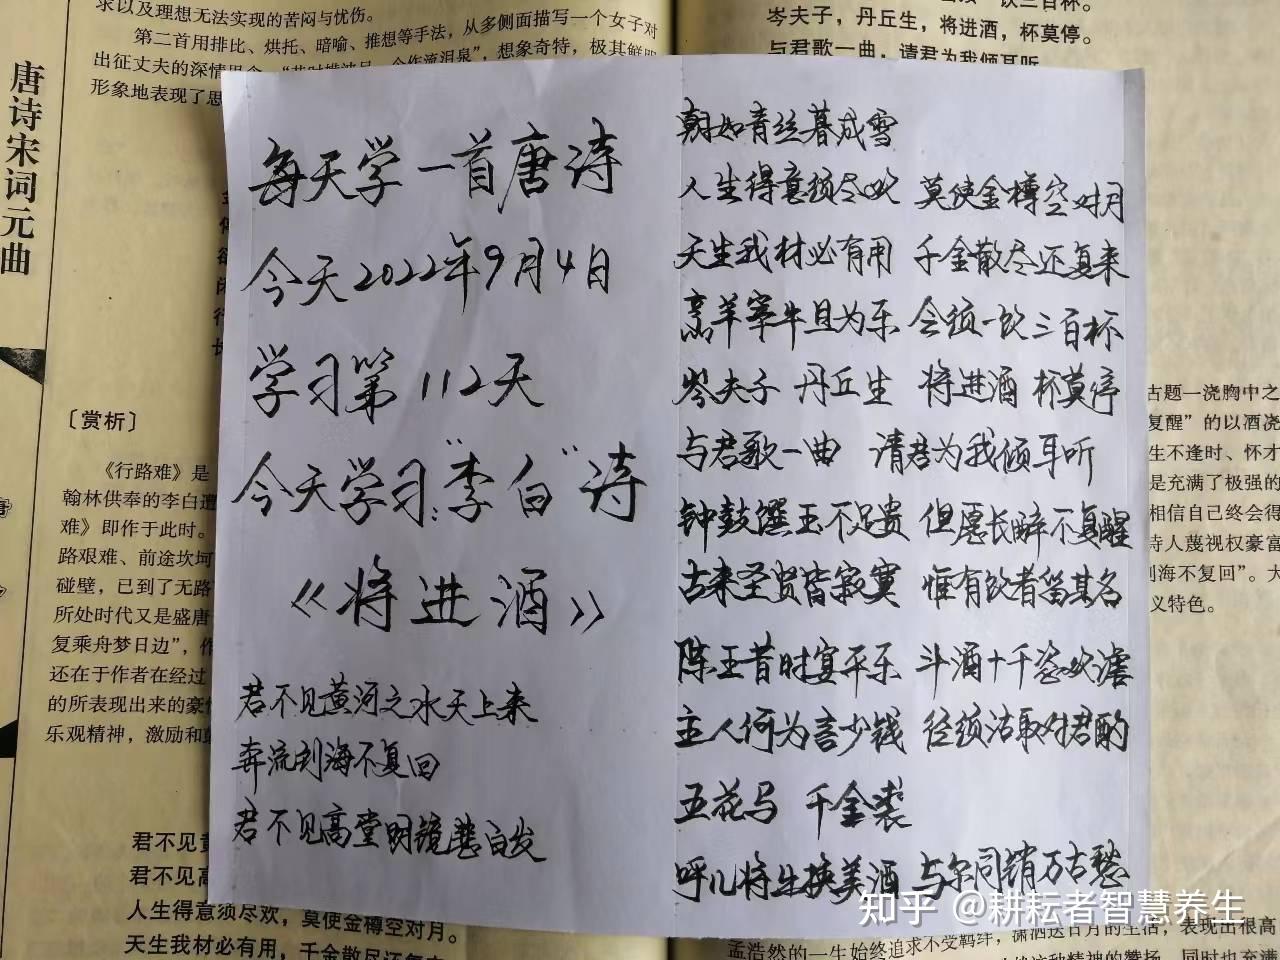 求以及理想无法实现的苦闷与忧伤。
第二首用排比、烘托、暗喻、推想等手法，从多侧面描写一个女子对
出征丈夫的深情思念
形象地表现了思
唐诗宋词元曲
〔赏析〕
《行路难》是
翰林供奉的李白遭
难》即作于此时。
路艰难、前途坎坷
碰壁，已到了无路
所处时代又是盛唐
复乘舟梦日边”，作
还在于作者在经过
的所表现出来的豪情
乐观精神，激励和
君不见黄
君不见高
人生得意须尽欢，莫使金樽空对月。
天生我材必有用，千金散尽还复来
每天学一首唐诗
今天2022年9月4日
学习第112天
今天学习:“李白”诗
《将进酒》
君不见黄河之水天上来
奔流到海不复回
君不见高堂明镜悲白发
饮三百杯。
岑夫子，丹丘生，将进酒，杯莫停。
与君歌一曲，请君为我倾耳听
朝如青丝暮成雪
人生得意须尽欢 莫使金樽空对月
天生我材必有用 千金散尽还复来
烹羊宰牛且为乐 会须一饮三百杯
岑夫子 丹丘生 将进酒 杯莫停
与君歌一曲 请君为我倾耳听
钟鼓馔玉不足贵 但愿长醉不复醒
古来圣贤皆寂寞 惟有饮者留其名
陈王昔时宴平乐 斗酒十千恣欢谑
主人何为言少钱 径须沽取对君酌
五花马 千金裘
呼儿将出换美酒 与尔同销万古愁
古题一浇胸中之
复醒”的以酒浇
生不逢时、怀才
是充满了极强的
相信自己终会得
诗人蔑视权豪富
到海不复回”。大
义特色。
孟浩然的一生始终追求不受羁绊，潇洒送日月的生活，表现出很高
知乎 @耕耘者智慧养生